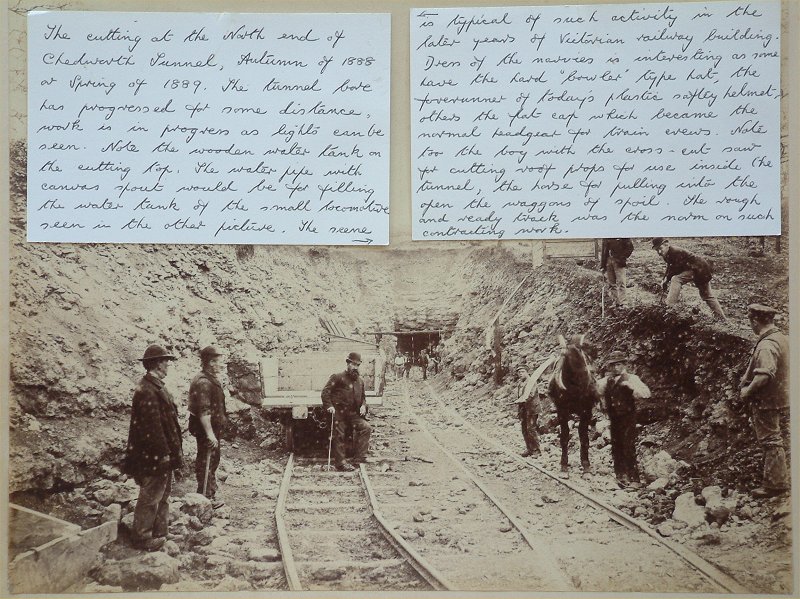 The cutting at the North end of
Chedworth Tunnel, Autumn of 1888
or Spring of 1889. The tunnel bore
has progressed for some distance,
work is in progress as lights can be
seen. Note the wooden water tank on
the cutting top. The water pipe with
canvas spout would be for filling
the water tank of the small locomotive
seen in the other picture. The scene →
is typical of such activity in the
later years of Victorian railway building.
Dress of the navvies is interesting as some
have the hard "bowler" type hat, the
forerunner of today's plastic saftey helmet,
others the flat cap which became the
normal headgear for train crews. Note
too the boy with the cross-cut saw
for cutting roof props for use inside the
tunnel, the horse for pulling into the
open the waggons of spoil. The rough
and ready track was the norm on such
contracting work.